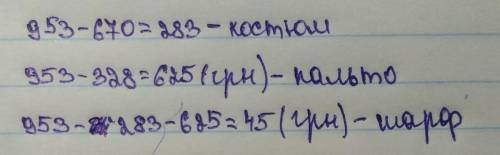 953-670=283-костюм
953-328=625(грн)-пальто
953-283-625=45(грн)-шарф